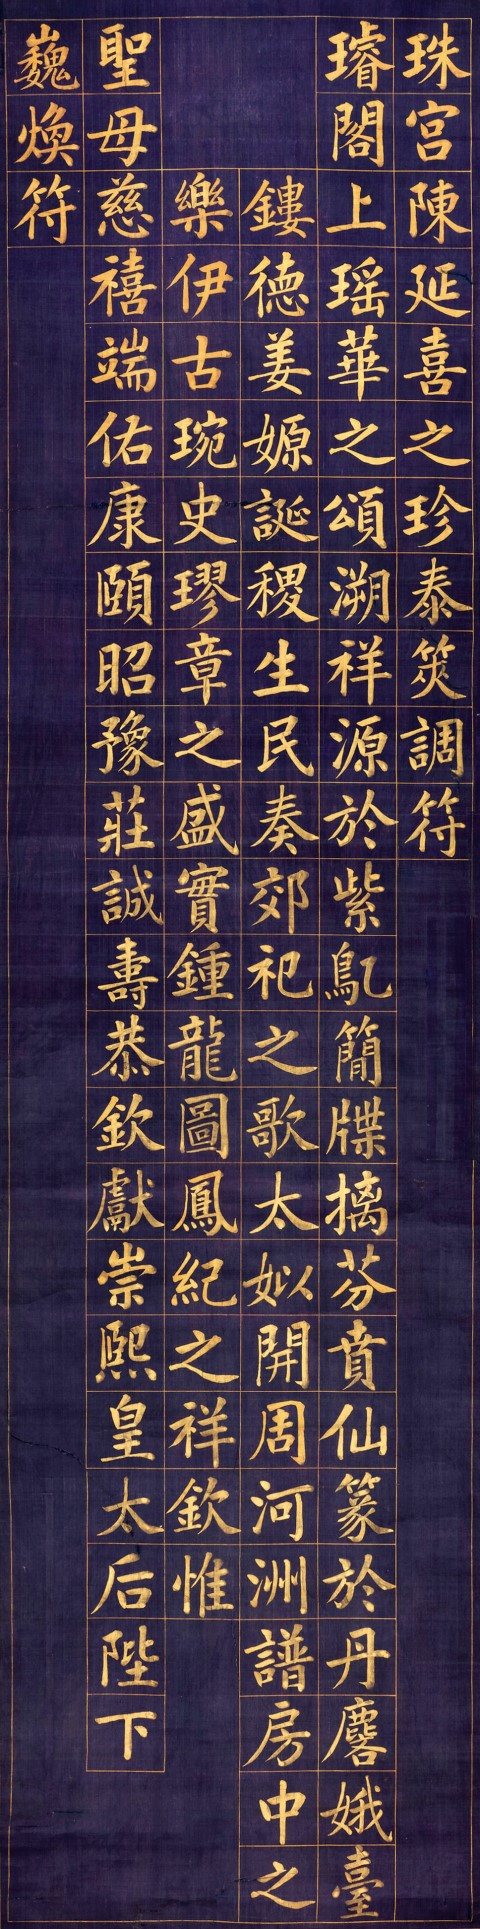 珠宮陳延喜之珍泰筴調符
璿閣上瑤華之頌溯祥源於紫鳦簡牒摛芬賁仙篆於丹麐娥臺
鏤德姜嫄誕稷生民奏郊祀之歌太姒開周河洲譜房中之
樂伊古琬史璆章之盛實鍾龍圖鳳紀之祥欽惟
聖母慈禧端佑康頤昭豫莊誠壽恭欽獻崇熙皇太后陛下
巍煥符